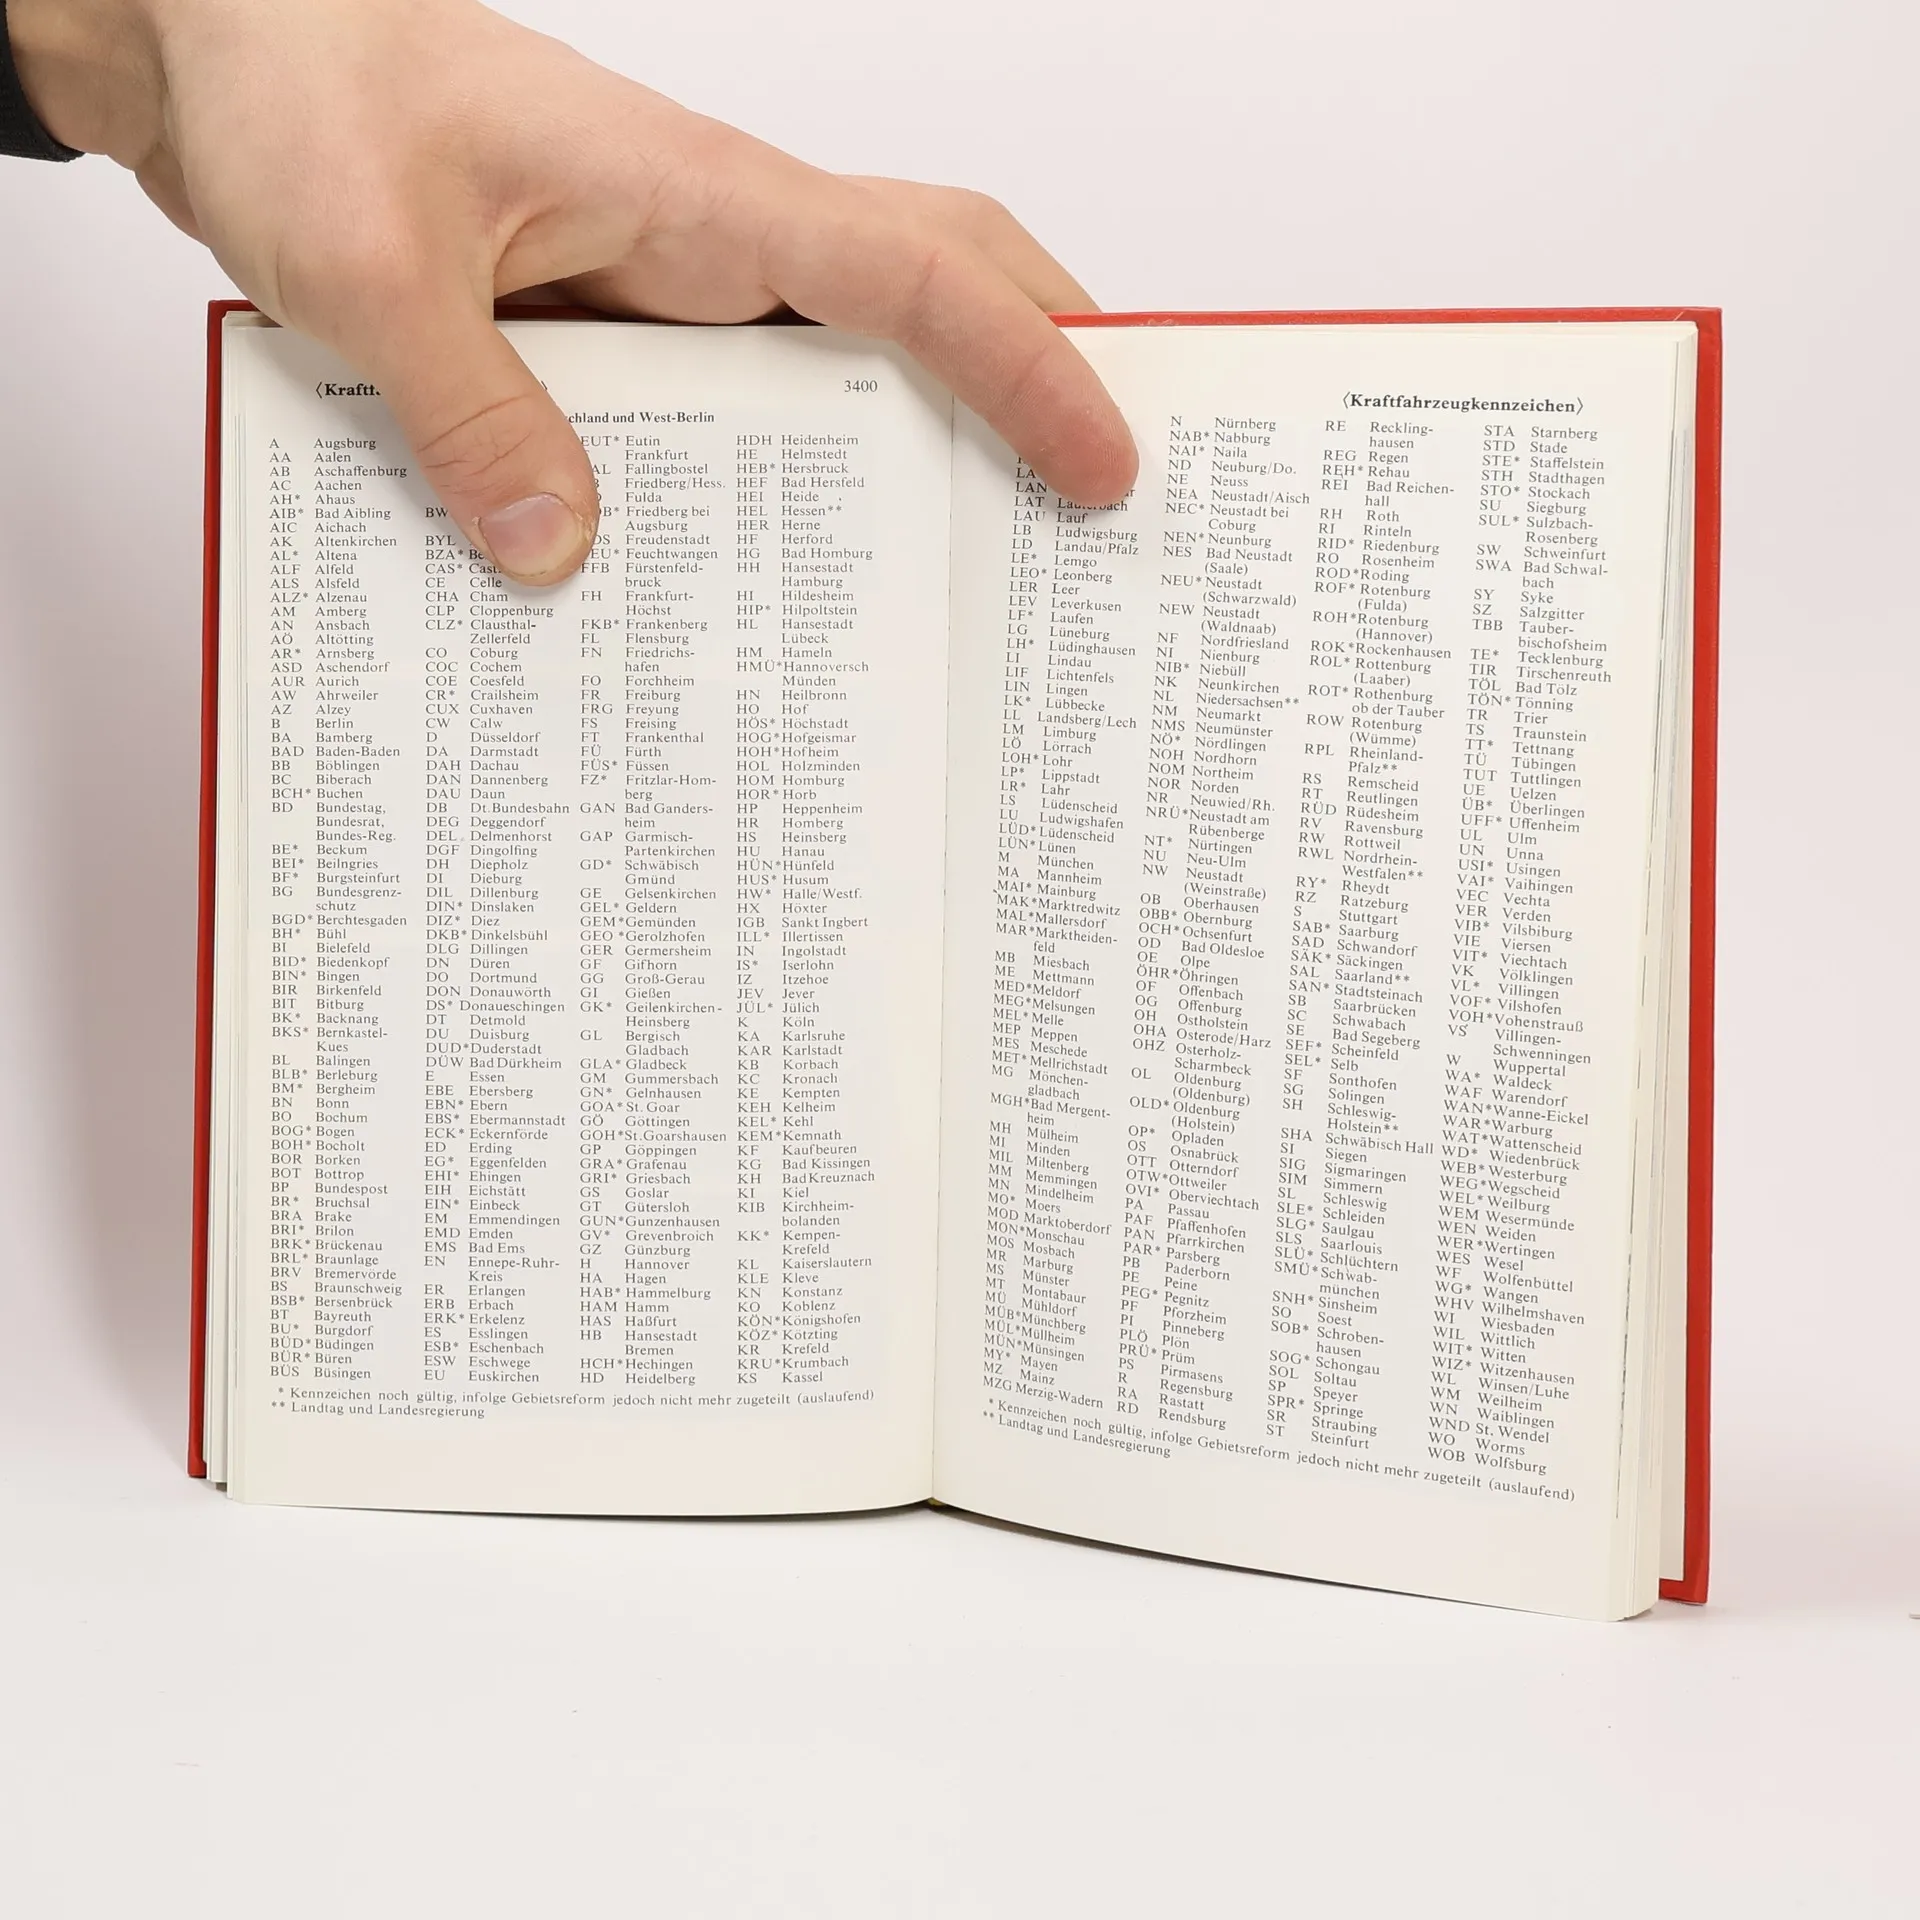 3400
chland und West-Berlin
A Augsburg
AA Aalen
AB Aschaffenburg
AC Aachen
AH* Ahaus
AIB* Bad Aibling
AIC Aichach
AK Altenkirchen
AL* Altena
ALF Alfeld
ALS Alsfeld
ALZ* Alzenau
AM Amberg
AN Ansbach
AÖ Altötting
AR* Arnsberg
ASD Aschendorf
AUR Aurich
AW Ahrweiler
AZ Alzey
B Berlin
BA Bamberg
BAD Baden-Baden
BB Böblingen
BC Biberach
BCH* Buchen
BD Bundestag,
Bundesrat,
Bundes-Reg.
BE* Beckum
BEI* Beilngries
BF* Burgsteinfurt
BG Bundesgrenz-
schutz
BGD* Berchtesgaden
BH* Bühl
BI Bielefeld
BID* Biedenkopf
BIN* Bingen
BIR Birkenfeld
BIT Bitburg
BK* Backnang
BKS* Bernkastel-
Kues
BL Balingen
BLB* Berleburg
BM* Bergheim
BN Bonn
BO Bochum
BOG* Bogen
BOH* Bocholt
BOR Borken
BOT Bottrop
BP Bundespost
BR* Bruchsal
BRA Brake
BRI* Brilon
BRK* Brückenau
BRL* Braunlage
BRV Bremervörde
BS Braunschweig
BSB* Bersenbrück
BT Bayreuth
BU* Burgdorf
BÜD* Büdingen
BÜR* Büren
BÜS Büsingen
BW
BYL
BZA*
CAS*
CE Celle
CHA Cham
CLP Cloppenburg
CLZ* Clausthal-
Zellerfeld
CO Coburg
COC Cochem
COE Coesfeld
CR* Crailsheim
CUX Cuxhaven
CW Calw
D Düsseldorf
DA Darmstadt
DAH Dachau
DAN Dannenberg
DAU Daun
DB Dt. Bundesbahn
DEG Deggendorf
DEL Delmenhorst
DGF Dingolfing
DH Diepholz
DI Dieburg
DIL Dillenburg
DIN* Dinslaken
DIZ* Diez
DKB* Dinkelsbühl
DLG Dillingen
DN Düren
DO Dortmund
DON Donauwörth
DS* Donaueschingen
DT Detmold
DU Duisburg
DUD* Duderstadt
DÜW Bad Dürkheim
E Essen
EBE Ebersberg
EBN* Ebern
EBS* Ebermannstadt
ECK* Eckernförde
ED Erding
EG* Eggenfelden
EHI* Ehingen
EIH Eichstätt
EIN* Einbeck
EM Emmendingen
EMD Emden
EMS Bad Ems
EN Ennepe-Ruhr-
Kreis
ER Erlangen
ERB Erbach
ERK* Erkelenz
ES Esslingen
ESB* Eschenbach
ESW Eschwege
EU Euskirchen
EUT* Eutin
Frankfurt
Fallingbostel
Friedberg/Hess.
Fulda
Friedberg bei
Augsburg
Freudenstadt
Feuchtwangen
FFB Fürstenfeld-
bruck
FH Frankfurt-
Höchst
FKB* Frankenberg
FL Flensburg
FN Friedrichs-
hafen
FO Forchheim
FR Freiburg
FRG Freyung
FS Freising
FT Frankenthal
FÜ Fürth
FÜS* Füssen
FZ* Fritzlar-Hom-
berg
GAN Bad Ganders-
heim
GAP Garmisch-
Partenkirchen
GD* Schwäbisch
Gmünd
GE Gelsenkirchen
GEL* Geldern
GEM* Gemünden
GEO* Gerolzhofen
GER Germersheim
GF Gifhorn
GG Groß-Gerau
GI Gießen
GK* Geilenkirchen-
Heinsberg
GL Bergisch
Gladbach
GLA* Gladbeck
GM Gummersbach
GN* Gelnhausen
GOA* St. Goar
GÖ Göttingen
GOH* St. Goarshausen
GP Göppingen
GRA* Grafenau
GRI* Griesbach
GS Goslar
GT Gütersloh
GUN* Gunzenhausen
GV* Grevenbroich
GZ Günzburg
H Hannover
HA Hagen
HAB* Hammelburg
HAM Hamm
HAS Haßfurt
HB Hansestadt
Bremen
HCH* Hechingen
HD Heidelberg
HDH Heidenheim
HE Helmstedt
HEB* Hersbruck
HEF Bad Hersfeld
HEI Heide
HEL Hessen**
HER Herne
HF Herford
HG Bad Homburg
HH Hansestadt
Hamburg
HI Hildesheim
HIP* Hilpoltstein
HL Hansestadt
Lübeck
HM Hameln
HMÜ* Hannoversch
Münden
HN Heilbronn
HO Hof
HÖS* Höchstadt
HOG* Hofgeismar
HOH* Hofheim
HOL Holzminden
HOM Homburg
HOR* Horb
HP Heppenheim
HR Homberg
HS Heinsberg
HU Hanau
HÜN* Hünfeld
HUS* Husum
HW* Halle/Westf.
HX Höxter
IGB Sankt Ingbert
ILL* Illertissen
IN Ingolstadt
IS* Iserlohn
IZ Itzehoe
JEV Jever
JÜL* Jülich
K Köln
KA Karlsruhe
KAR Karlstadt
KB Korbach
KC Kronach
KE Kempten
KEH Kelheim
KEL* Kehl
KEM* Kemnath
KF Kaufbeuren
KG Bad Kissingen
KH Bad Kreuznach
KI Kiel
KIB Kirchheim-
bolanden
KK* Kempen-
Krefeld
KL Kaiserslautern
KLE Kleve
KN Konstanz
KO Koblenz
KÖN* Königshofen
KÖZ* Kötzting
KR Krefeld
KRU* Krumbach
KS Kassel
* Kennzeichen noch gültig, infolge Gebietsreform jedoch nicht mehr zugeteilt (auslaufend)
** Landtag und Landesregierung
〈Kraftfahrzeugkennzeichen〉
LAN
LAT Lauterbach
LAU Lauf
LB Ludwigsburg
LD Landau/Pfalz
LE* Lemgo
LEO* Leonberg
LER Leer
LEV Leverkusen
LF* Laufen
LG Lüneburg
LH* Lüdinghausen
LI Lindau
LIF Lichtenfels
LIN Lingen
LK* Lübbecke
LL Landsberg/Lech
LM Limburg
LÖ Lörrach
LOH* Lohr
LP* Lippstadt
LR* Lahr
LS Lüdenscheid
LU Ludwigshafen
LÜD* Lüdenscheid
LÜN* Lünen
M München
MA Mannheim
MAI* Mainburg
MAK* Marktredwitz
MAL* Mallersdorf
MAR* Marktheiden-
feld
MB Miesbach
ME Mettmann
MED* Meldorf
MEG* Melsungen
MEL* Melle
MEP Meppen
MES Meschede
MET* Mellrichstadt
MG Mönchen-
gladbach
MGH* Bad Mergent-
heim
MH Mülheim
MI Minden
MIL Miltenberg
MM Memmingen
MN Mindelheim
MO* Moers
MOD Marktoberdorf
MON* Monschau
MOS Mosbach
MR Marburg
MS Münster
MT Montabaur
MÜ Mühldorf
MÜB* Münchberg
MÜL* Müllheim
MÜN* Münsingen
MY* Mayen
MZ Mainz
MZG Merzig-Wadern
N Nürnberg
NAB* Nabburg
NAI* Naila
ND Neuburg/Do.
NE Neuss
NEA Neustadt/Aisch
NEC* Neustadt bei
Coburg
NEN* Neunburg
NES Bad Neustadt
(Saale)
NEU* Neustadt
(Schwarzwald)
NEW Neustadt
(Waldnaab)
NF Nordfriesland
NI Nienburg
NIB* Niebüll
NK Neunkirchen
NL Niedersachsen**
NM Neumarkt
NMS Neumünster
NÖ* Nördlingen
NOH Nordhorn
NOM Northeim
NOR Norden
NR Neuwied/Rh.
NRÜ* Neustadt am
Rübenberge
NT* Nürtingen
NU Neu-Ulm
NW Neustadt
(Weinstraße)
OB Oberhausen
OBB* Obernburg
OCH* Ochsenfurt
OD Bad Oldesloe
OE Olpe
ÖHR* Öhringen
OF Offenbach
OG Offenburg
OH Ostholstein
OHA Osterode/Harz
OHZ Osterholz-
Scharmbeck
OL Oldenburg
(Oldenburg)
OLD* Oldenburg
(Holstein)
OP* Opladen
OS Osnabrück
OTT Otterndorf
OTW* Ottweiler
OVI* Oberviechtach
PA Passau
PAF Pfaffenhofen
PAN Pfarrkirchen
PAR* Parsberg
PB Paderborn
PE Peine
PEG* Pegnitz
PF Pforzheim
PI Pinneberg
PLÖ Plön
PRÜ* Prüm
PS Pirmasens
R Regensburg
RA Rastatt
RD Rendsburg
RE Reckling-
hausen
REG Regen
REH* Rehau
REI Bad Reichen-
hall
RH Roth
RI Rinteln
RID* Riedenburg
RO Rosenheim
ROD* Roding
ROF* Rotenburg
(Fulda)
ROH* Rotenburg
(Hannover)
ROK* Rockenhausen
ROL* Rottenburg
(Laaber)
ROT* Rothenburg
ob der Tauber
ROW Rotenburg
(Wümme)
RPL Rheinland-
Pfalz**
RS Remscheid
RT Reutlingen
RÜD Rüdesheim
RV Ravensburg
RW Rottweil
RWL Nordrhein-
Westfalen**
RY* Rheydt
RZ Ratzeburg
S Stuttgart
SAB* Saarburg
SAD Schwandorf
SÄK* Säckingen
SAL Saarland**
SAN* Stadtsteinach
SB Saarbrücken
SC Schwabach
SE Bad Segeberg
SEF* Scheinfeld
SEL* Selb
SF Sonthofen
SG Solingen
SH Schleswig-
Holstein**
SHA Schwäbisch Hall
SI Siegen
SIG Sigmaringen
SIM Simmern
SL Schleswig
SLE* Schleiden
SLG* Saulgau
SLS Saarlouis
SLÜ* Schlüchtern
SMÜ* Schwab-
münchen
SNH* Sinsheim
SO Soest
SOB* Schroben-
hausen
SOG* Schongau
SOL Soltau
SP Speyer
SPR* Springe
SR Straubing
ST Steinfurt
STA Starnberg
STD Stade
STE* Staffelstein
STH Stadthagen
STO* Stockach
SU Siegburg
SUL* Sulzbach-
Rosenberg
SW Schweinfurt
SWA Bad Schwal-
bach
SY Syke
SZ Salzgitter
TBB Tauber-
bischofsheim
TE* Tecklenburg
TIR Tirschenreuth
TÖL Bad Tölz
TÖN* Tönning
TR Trier
TS Traunstein
TT* Tettnang
TÜ Tübingen
TUT Tuttlingen
UE Uelzen
ÜB* Überlingen
UFF* Uffenheim
UL Ulm
UN Unna
USI* Usingen
VAI* Vaihingen
VEC Vechta
VER Verden
VIB* Vilsbiburg
VIE Viersen
VIT* Viechtach
VK Völklingen
VL* Villingen
VOF* Vilshofen
VOH* Vohenstrauß
VS Villingen-
Schwenningen
W Wuppertal
WA* Waldeck
WAF Warendorf
WAN* Wanne-Eickel
WAR* Warburg
WAT* Wattenscheid
WD* Wiedenbrück
WEB* Westerburg
WEG* Wegscheid
WEL* Weilburg
WEM Wesermünde
WEN Weiden
WER* Wertingen
WES Wesel
WF Wolfenbüttel
WG* Wangen
WHV Wilhelmshaven
WI Wiesbaden
WIL Wittlich
WIT* Witten
WIZ* Witzenhausen
WL Winsen/Luhe
WM Weilheim
WN Waiblingen
WND St. Wendel
WO Worms
WOB Wolfsburg
* Kennzeichen noch gültig, infolge Gebietsreform jedoch nicht mehr zugeteilt (auslaufend)
** Landtag und Landesregierung